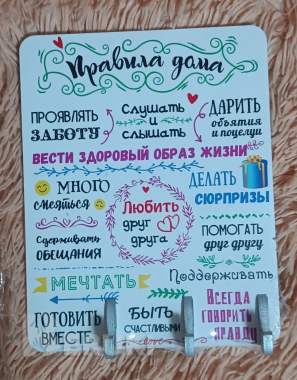 Правила дома
ПРОЯВЛЯТЬ
ЗАБОТУ
Слушать
и
слышать
ДАРИТЬ
объятия
и поцелуи
ВЕСТИ ЗДОРОВЫЙ ОБРАЗ ЖИЗНИ
МНОГО
смеяться
ДЕЛАТЬ
СЮРПРИЗЫ
Любить
друг
друга
Сдерживать
ОБЕЩАНИЯ
ПОМОГАТЬ
друг другу
МЕЧТАТЬ
Поддерживать
ГОТОВИТЬ
ВМЕСТЕ
БЫТЬ
СЧАСТЛИВЫМИ
love
Всегда
говорить
правду